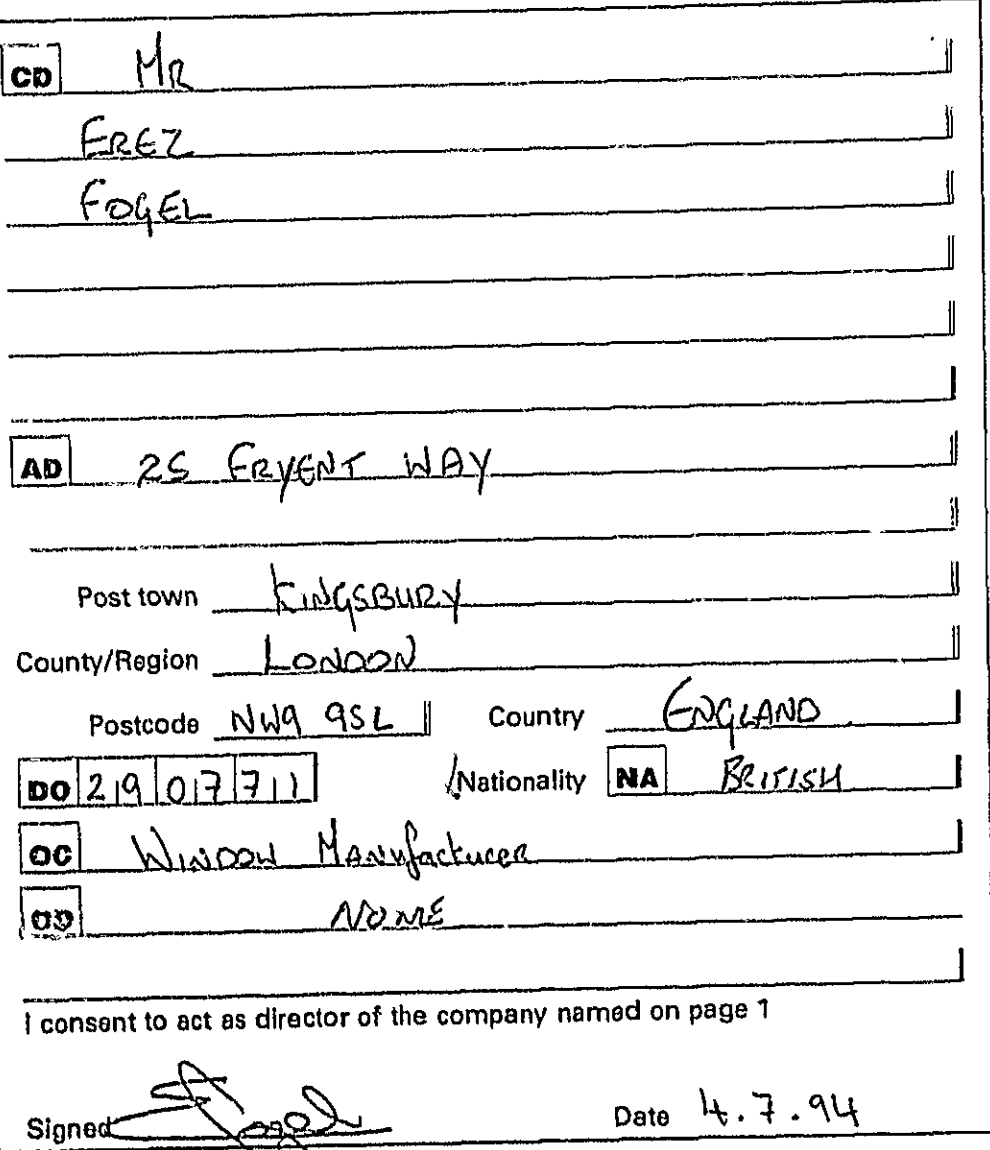 CD MR
EREZ
FOGEL
AD 25 FRYENT WAY
Post town KINGSBURY
County/Region LONDON
Postcode NW9 9SL Country ENGLAND
DO 29 07 71 Nationality NA BRITISH
OC WINDOW MANufacturer
OD NONE
I consent to act as director of the company named on page 1
Signed Fogel Date 4.7.94